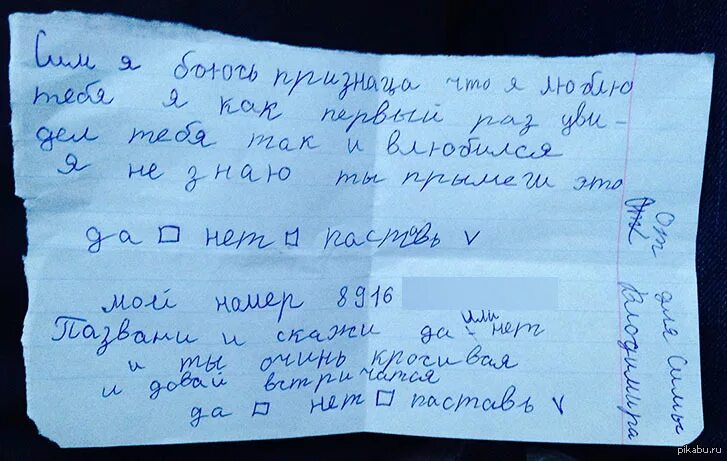 Сим я боюсь признаца что я люблю
тебя я как первый раз уви-
дел тебя так и влюбился
я не знаю ты прымеш это
да □ нет □ паставь v
мой номер 8916
Пазвани и скажи да или нет
и ты очинь кросивая
и довай встричатся
да □ нет □ паставь v
От для Симы
Влодимира
pikabu.ru